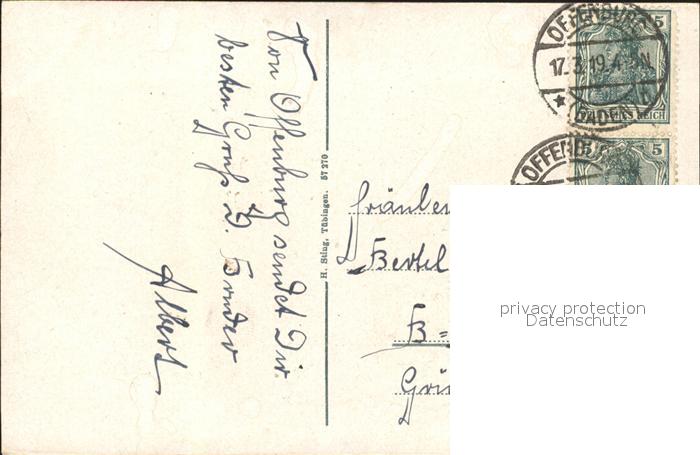 Von Offenburg sendet Dir
besten Gruß D. Bruder
Albert
H. Sting, Tübingen. 57270
OFFENBURG
17.3.19.4-5N.
* (BADEN) 1
5
DEUTSCHES REICH
OFFENBURG
5 5
Fräulein
Bertel
B=
privacy protection
Datenschutz